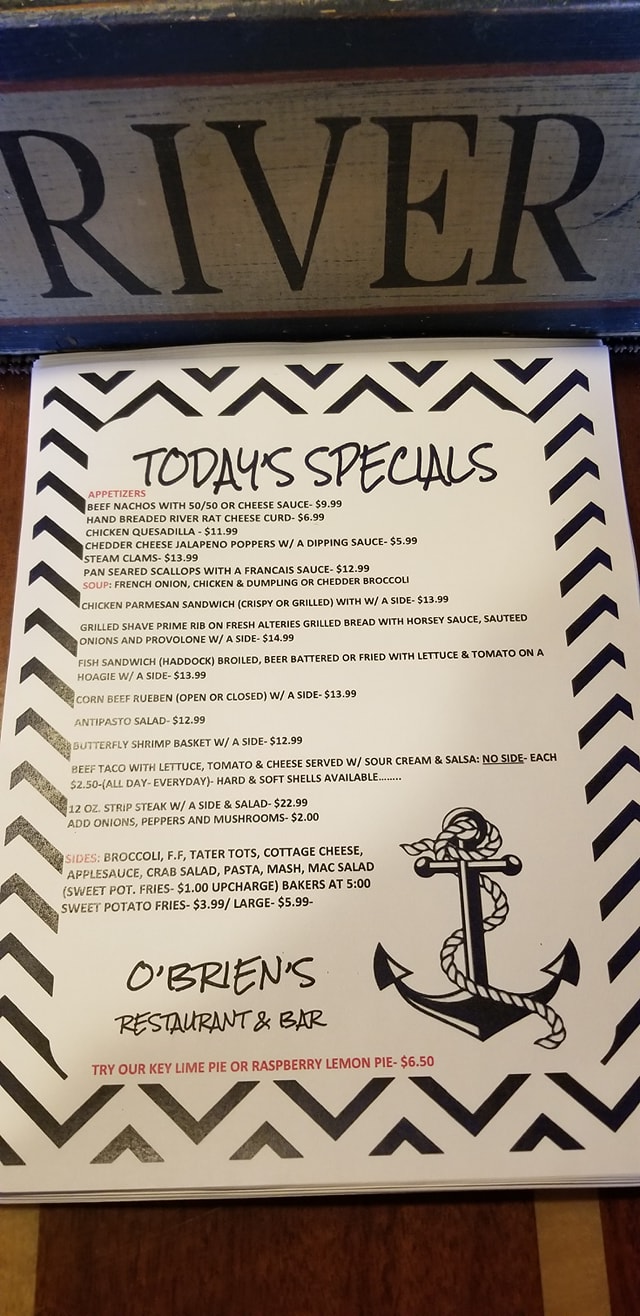 RIVER
TODAY'S SPECIALS
APPETIZERS
BEEF NACHOS WITH 50/50 OR CHEESE SAUCE- $9.99
HAND BREADED RIVER RAT CHEESE CURD- $6.99
CHICKEN QUESADILLA - $11.99
CHEDDER CHEESE JALAPENO POPPERS W/ A DIPPING SAUCE- $5.99
STEAM CLAMS- $13.99
PAN SEARED SCALLOPS WITH A FRANCAIS SAUCE- $12.99
SOUP: FRENCH ONION, CHICKEN & DUMPLING OR CHEDDER BROCCOLI
CHICKEN PARMESAN SANDWICH (CRISPY OR GRILLED) WITH W/ A SIDE- $13.99
GRILLED SHAVE PRIME RIB ON FRESH ALTERIES GRILLED BREAD WITH HORSEY SAUCE, SAUTEED
ONIONS AND PROVOLONE W/ A SIDE- $14.99
FISH SANDWICH (HADDOCK) BROILED, BEER BATTERED OR FRIED WITH LETTUCE & TOMATO ON A
HOAGIE W/ A SIDE- $13.99
CORN BEEF RUEBEN (OPEN OR CLOSED) W/ A SIDE- $13.99
ANTIPASTO SALAD- $12.99
BUTTERFLY SHRIMP BASKET W/ A SIDE- $12.99
BEEF TACO WITH LETTUCE, TOMATO & CHEESE SERVED W/ SOUR CREAM & SALSA: NO SIDE- EACH
$2.50-(ALL DAY- EVERYDAY)- HARD & SOFT SHELLS AVAILABLE........
12 OZ. STRIP STEAK W/ A SIDE & SALAD- $22.99
ADD ONIONS, PEPPERS AND MUSHROOMS- $2.00
SIDES: BROCCOLI, F.F, TATER TOTS, COTTAGE CHEESE,
APPLESAUCE, CRAB SALAD, PASTA, MASH, MAC SALAD
(SWEET POT. FRIES- $1.00 UPCHARGE) BAKERS AT 5:00
SWEET POTATO FRIES- $3.99/ LARGE- $5.99-
O'BRIEN'S
RESTAURANT & BAR
TRY OUR KEY LIME PIE OR RASPBERRY LEMON PIE- $6.50